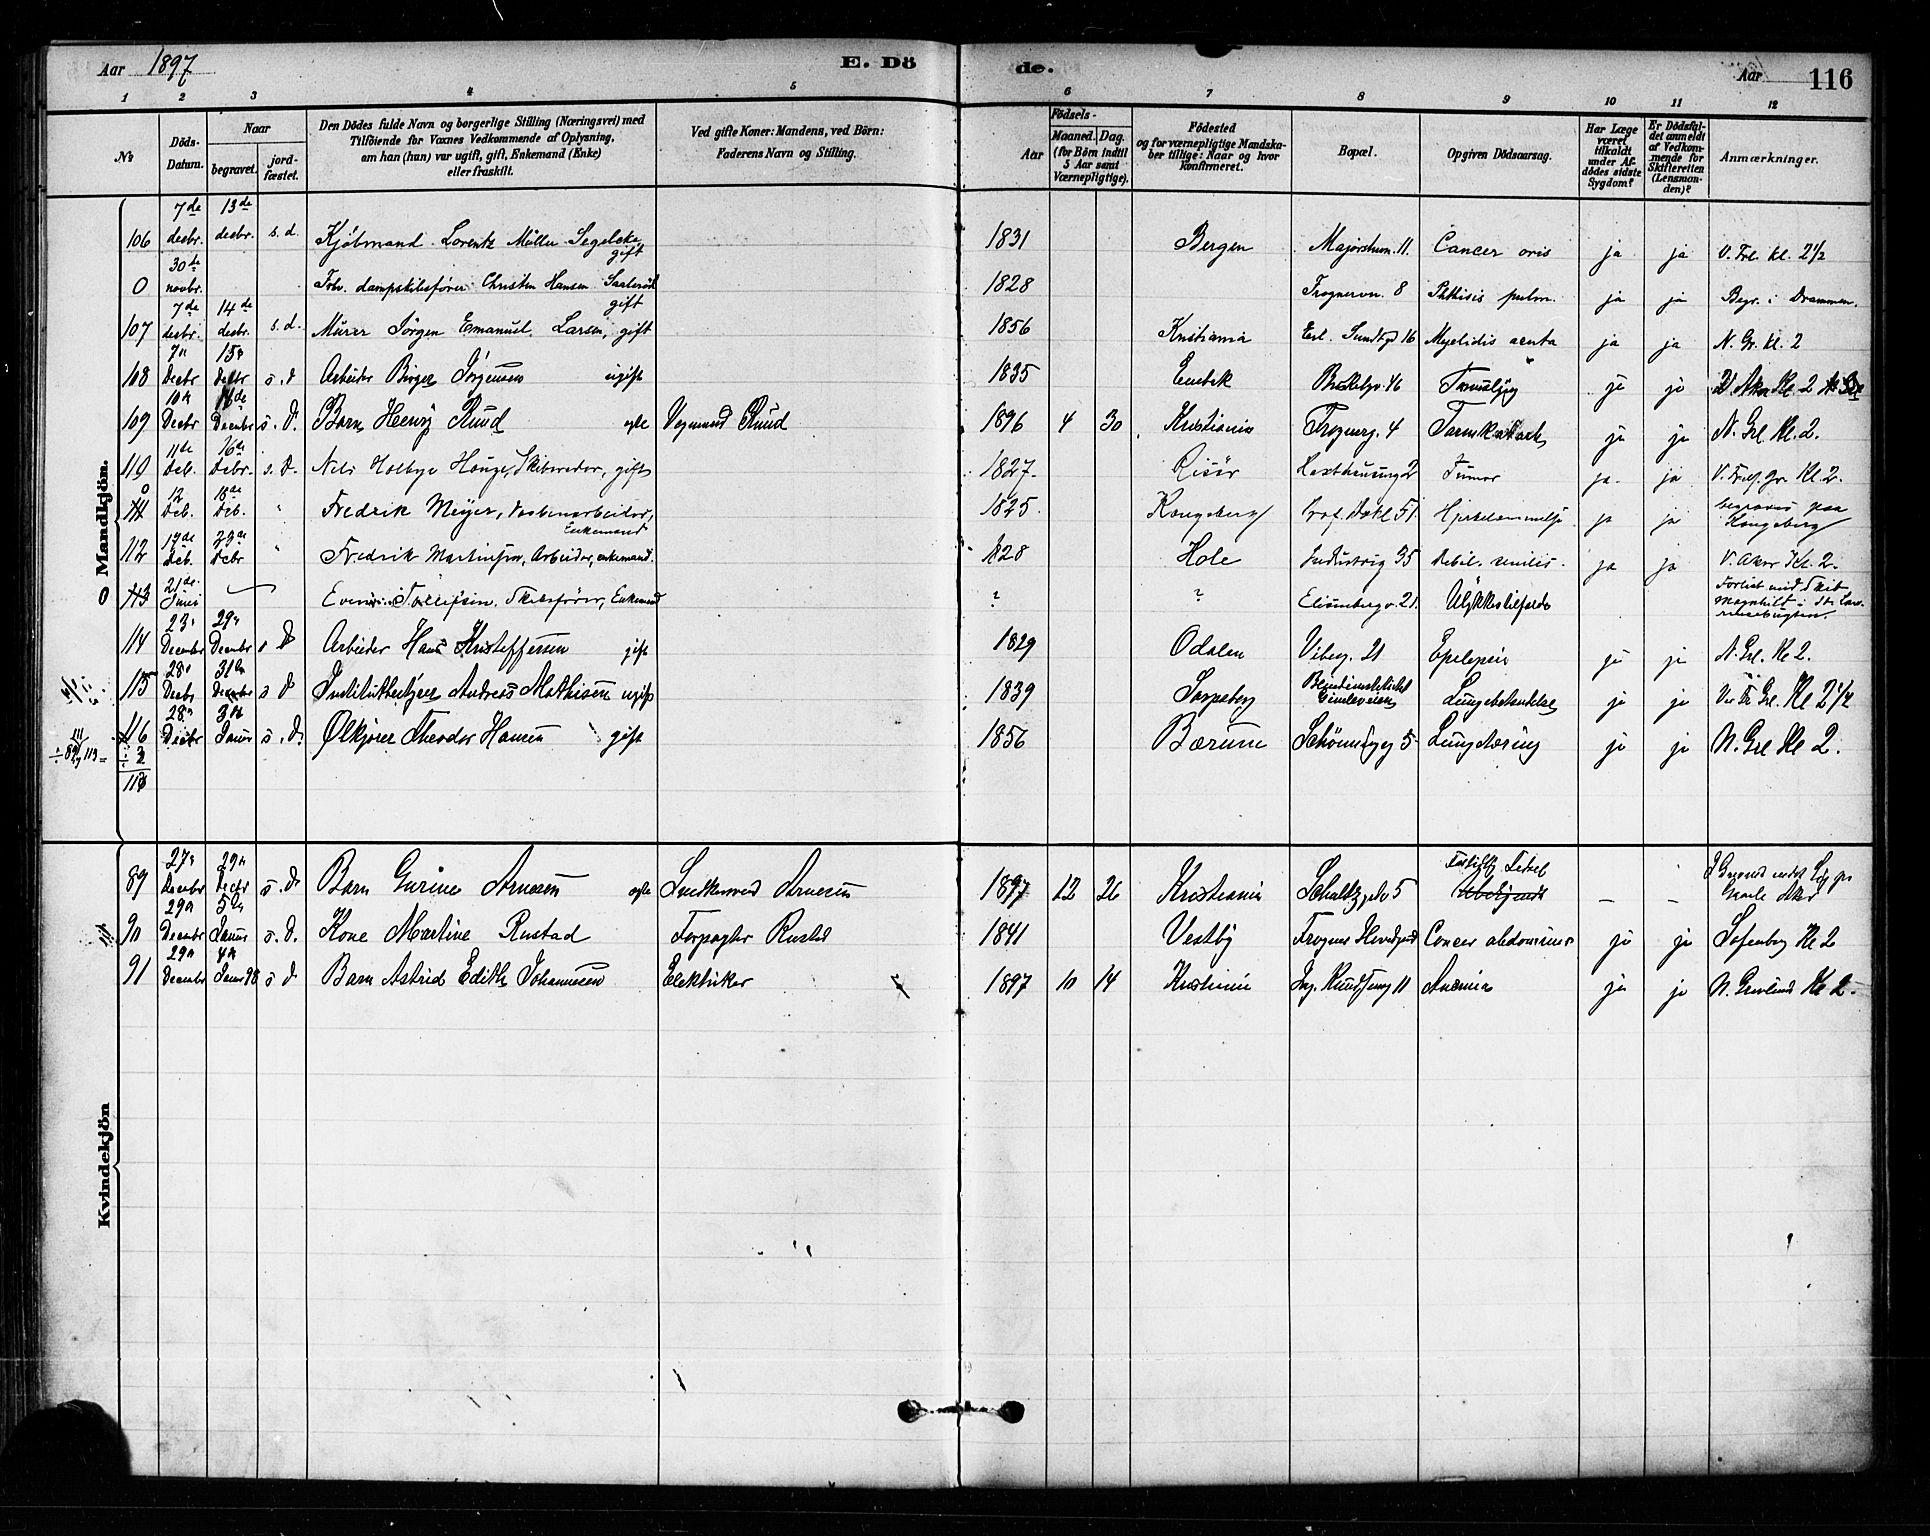 Aar 1897 E. Dö de. Aar 116
1 2 3 4 5 6 7 8 9 10 11 12
№ Döds-Datum. Naar begravet. jord-fæstet. Den Dödes fulde Navn og borgerlige Stilling (Næringsvei) med Tilföiende for Voxnes Vedkommende af Oplysning, om han (hun) var ugift, gift, Enkemand (Enke) eller fraskilt. Ved gifte Koner: Mandens, ved Börn: Faderens Navn og Stilling. Födsels- Aar Maaned. Dag. (for Börn indtil 5 Aar samt Værnepligtige). Födested og for værnepligtige Mandska-ber tillige: Naar og hvor konfirmeret. Bopæl. Opgiven Dödsaarsag. Har Læge været tilkaldt under Af-dödes sidste Sygdom? Er Dödsfal-det anmeldt af Vedkom-mende for Skifteretten (Lensman-den)? Anmærkninger.
Mandkjön.
106 7de desbr. 13de desbr. s. d. Kjöbmand Lorentz Möller Segelcke, gift 1831 Bergen Majorstuvn. 11. Cancer oris ja ja V. Frl. kl. 2½
0 30te novbr. Forv. dampskibsförer Christen Hansen gift 1828 Frognervn. 8 Phthisis pulm. ja ja Begr. i Drammen.
107 7de desbr. 14de desbr. s. d. Murer Jörgen Emanuel Larsen, gift 1856 Kristiania Eil. Sundtgd 16 Myelidis acuta ja ja N. Gr. kl. 2
108 7n Decbr 15n Decbr s. d Arbeider Birger Jörgensen ugift 1835 Enebak 46 ja ja V Aker Kl. 2
109 10n Decbr 16de Decembr s. D. Barn Henry Ruud egte Vognmand Ruud 1896 4 30 Kristiania Frognerg. 4 Tarmkatarh ja ja N. Grl. Kl. 2.
110 11de Deb. 16de Debr. s. D. Nils Holbye Houge, Skibsreder, gift 1827. Risör 2 Tumor ja. ja V. Frelf. Gr. Kl. 2.
0 111 12 Deb. 18de Deb. " Fredrik Meyer, Enkemand 1825. Kongsberg Prof. Dahl 51. ja ja begraves paa Kongsberg
112 17de Deb. 23de Debr " Fredrik Martinsen, Arbeider, enkemand. 1828 Hole Industrig 35 Debil. senilis. ja ja V. Aker Kl. 2.
0 113 21de Juni Skibsförer, Enkemand ? ? Elisenbergv. 21. Ulykkestilfælde Forlist med Skib
114 23n Decembr 29n Decembr s D Arbeider Hans Kristoffersen gift 1829 Odalen Viberg. 21 Epilepsie ja ja N. Grl. Kl 2.
115 28n Decbr 31te Decembr s D Andreas Mathisen ugift 1839 Sarpsborg Lungebetændelse ja ja Kl 2½
116 28n Decbr 3n Januar s. D. Ölkjörer Theodor Hansen gift 1856 Bærum 5 Lungetæring ja ja N. Grl Kl 2.
÷ 3
113
Kvindekjön
89 27n Decembr 29n Decbr s. D Barn Gurine Arnesen egte Snedkersvend Arnesen 1897 12 26 Kristiania 5 — —
90 29n Decembr 5te Januar s. D. Kone Martine Rustad Forpagter Rustad 1841 Vestby Frogner Hovedgaard Cancer abdominis ja ja Sofienberg Kl 2
91 29n Decembr 4n Januar 98 s D Barn Astrid Edith Johannesen Elektriker 1897 10 14 Kristiania 11 Anæmia ja ja N. Grönland Kl 2.